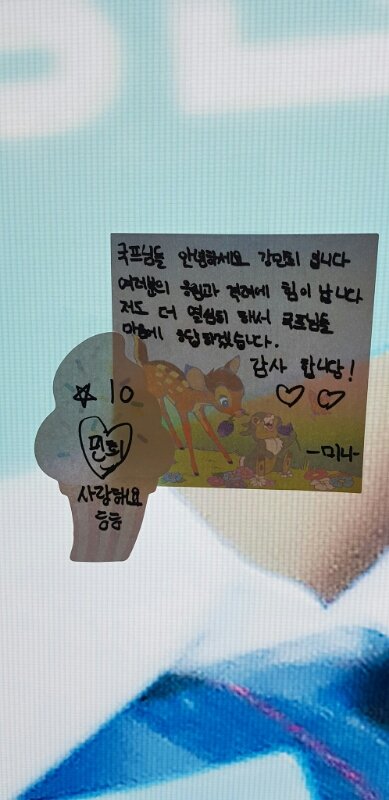 국프님들 안녕하세요 강민희 입니다
여러분의 응원과 격려에 힘이 납니다
저도 더 열심히 해서 국프님들
마음에 응답하겠습니다.
감사 합니당!
♡ ♡
-미니-
☆ 10
민희
사랑해요
등등